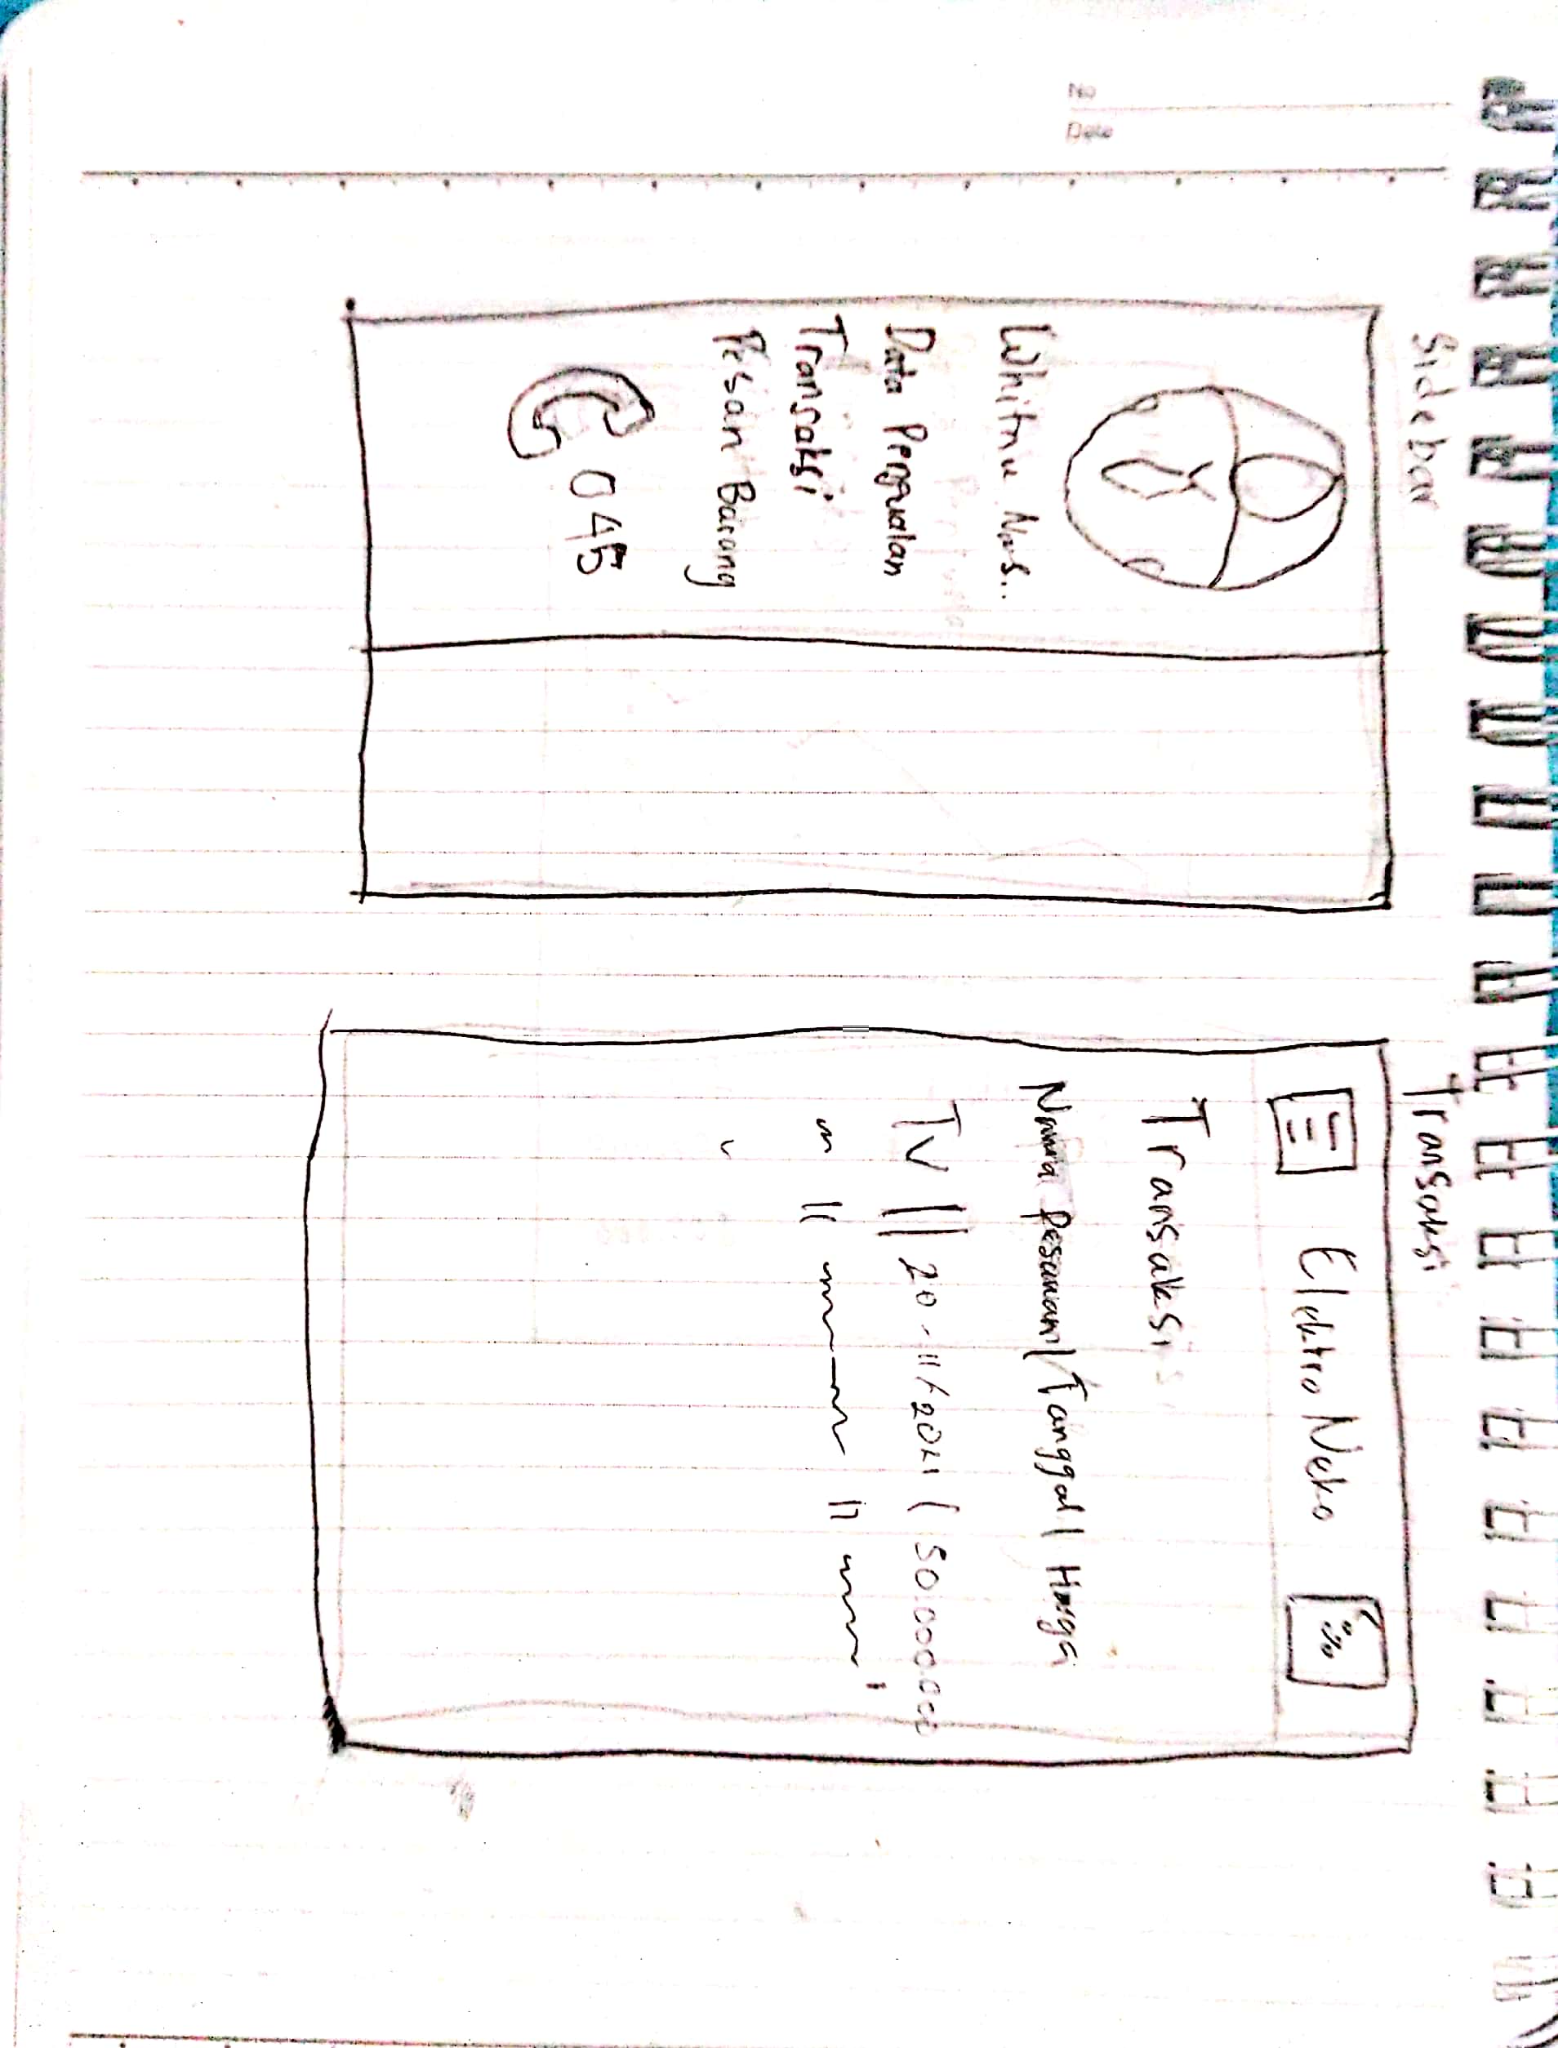 No
Date
Sidebar
Data Pengualan
Transaksi
Pesan Barang
045
Transaksi
Elektro Neko
Transaksi
Nama Pesanan | Tanggal | Harga
TV || 20-11-2021 | 50.000.000